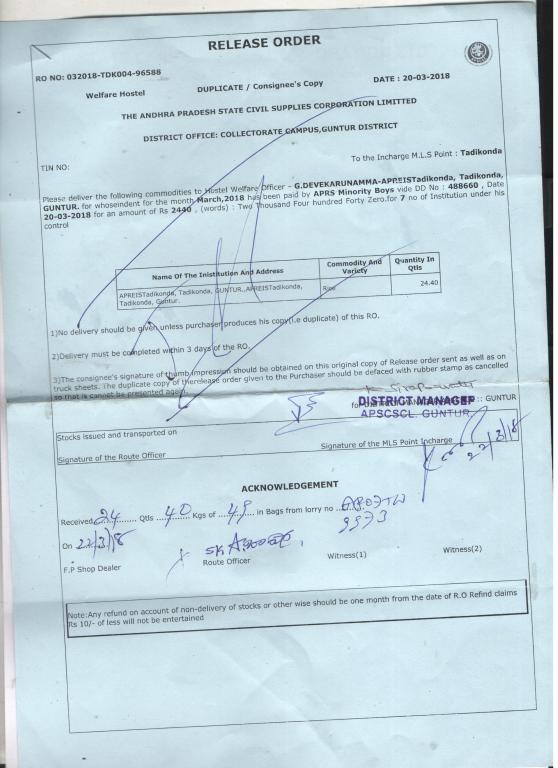 RELEASE ORDER
RO NO: 032018-TDK004-96588
Welfare Hostel
DUPLICATE / Consignee's Copy
DATE : 20-03-2018
THE ANDHRA PRADESH STATE CIVIL SUPPLIES CORPORATION LIMITTED
DISTRICT OFFICE: COLLECTORATE CAMPUS,GUNTUR DISTRICT
TIN NO:
To the Incharge M.L.S Point : Tadikonda
Please deliver the following commodities to Hostel Welfare Officer - G.DEVEKARUNAMMA-APREISTadikonda, Tadikonda,
GUNTUR. for whoseindent for the month March,2018 has been paid by APRS Minority Boys vide DD No : 488660 , Date
20-03-2018 for an amount of Rs 2440 , (words) : Two Thousand Four hundred Forty Zero.for 7 no of Institution under his
control
Name Of The Inistitution And Address
Commodity And Variety
Quantity In Qtls
APREISTadikonda, Tadikonda, GUNTUR.,APREISTadikonda,
Tadikonda, Guntur.
Rice
24.40
1)No delivery should be given unless purchaser produces his copy(i.e duplicate) of this RO.
2)Delivery must be completed within 3 days of the RO.
3)The consignee's signature of thumb impression should be obtained on this original copy of Release order sent as well as on
truck sheets. The duplicate copy of therelease order given to the Purchaser should be defaced with rubber stamp as cancelled
so that is cannot be presented again.
DISTRICT MANAGER :: GUNTUR
APSCSCL. GUNTUR
Stocks issued and transported on
Signature of the Route Officer
Signature of the MLS Point Incharge
22/3/18
ACKNOWLEDGEMENT
Received 24 Qtls 40 Kgs of 49 in Bags from lorry no
9973
On 22/3/18
F.P Shop Dealer
Route Officer
Witness(1)
Witness(2)
Note:Any refund on account of non-delivery of stocks or other wise should be one month from the date of R.O Refind claims
Rs 10/- of less will not be entertained